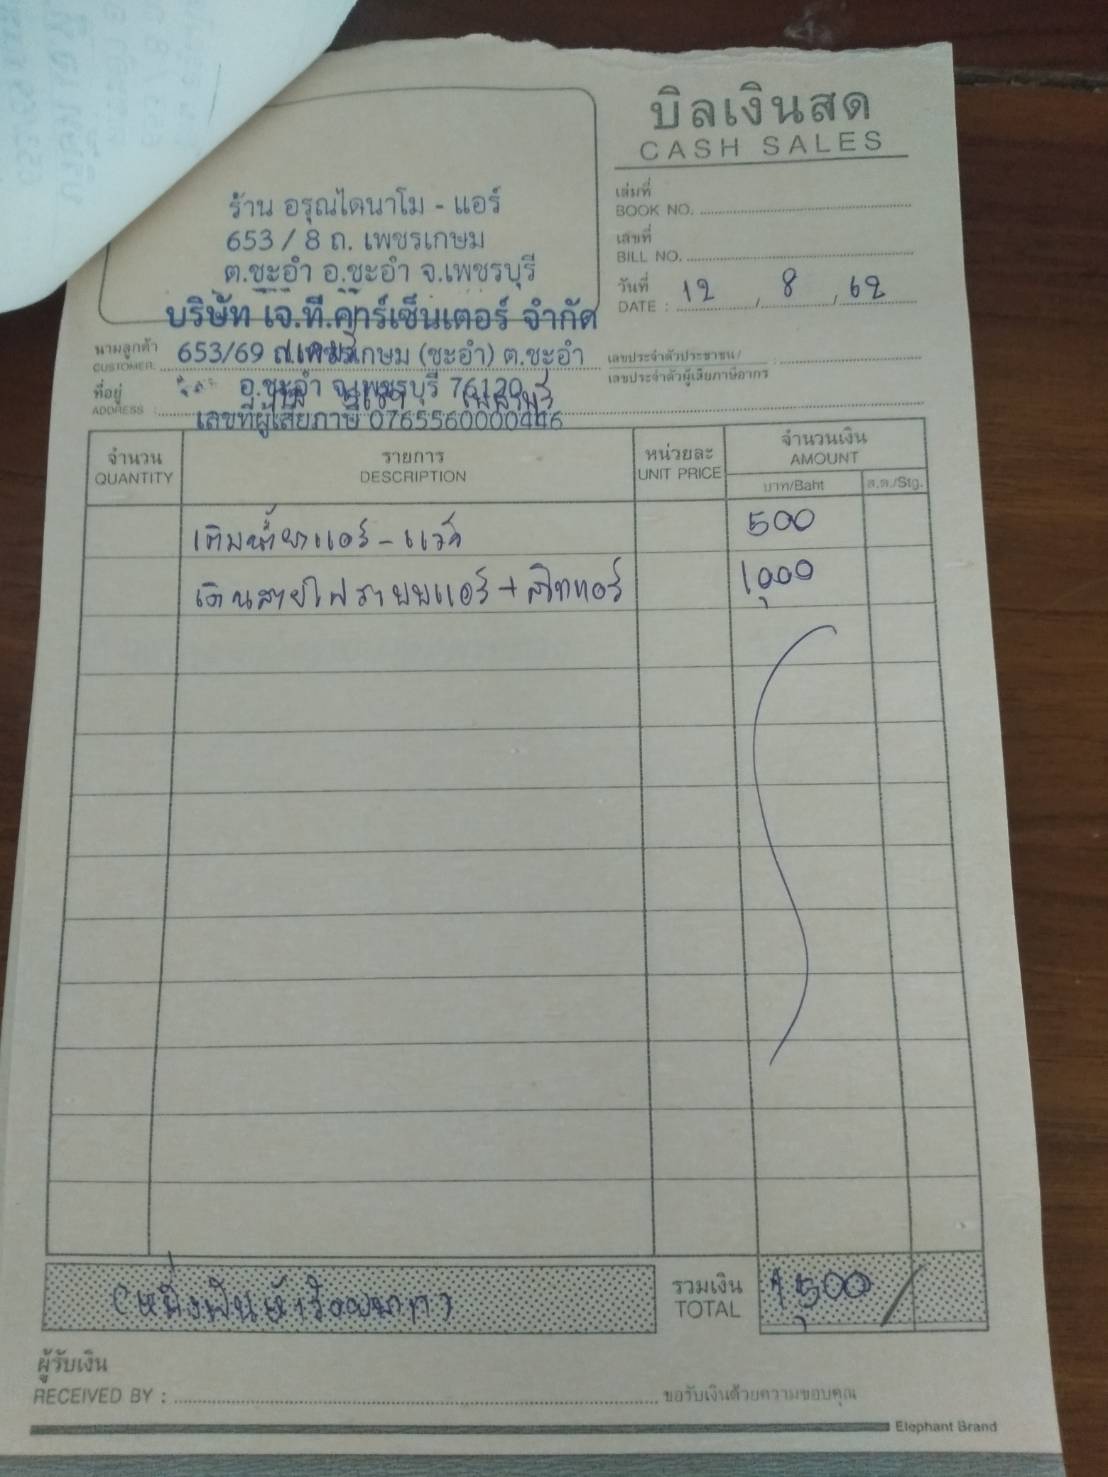 บิลเงินสด
CASH SALES
ร้าน อรุณไดนาโม - แอร์
653 / 8 ถ. เพชรเกษม
ต.ชะอำ อ.ชะอำ จ.เพชรบุรี
เล่มที่
BOOK NO.
เลขที่
BILL NO.
วันที่ 12 8 62
DATE :
บริษัท เจ.ที.คาร์เซ็นเตอร์ จำกัด
นามลูกค้า
CUSTOMER:
653/69 ถ.เพชรเกษม (ชะอำ) ต.ชะอำ
เลขประจำตัวประชาชน/
เลขประจำตัวผู้เสียภาษีอากร
ที่อยู่
ADDRESS :
อ.ชะอำ จ.เพชรบุรี 76120
เลขที่ผู้เสียภาษี 0765560000446
จำนวน รายการ หน่วยละ จำนวนเงิน
QUANTITY DESCRIPTION UNIT PRICE AMOUNT
บาท/Baht ส.ต./Stg.
เติมน้ำยาแอร์ - แว๊ค 500
เดินสายไฟระบบแอร์ + สวิทแอร์ 1,000
(หนึ่งพันห้าร้อยบาท) รวมเงิน 1,500
TOTAL
ผู้รับเงิน
RECEIVED BY : ขอรับเงินด้วยความขอบคุณ
Elephant Brand